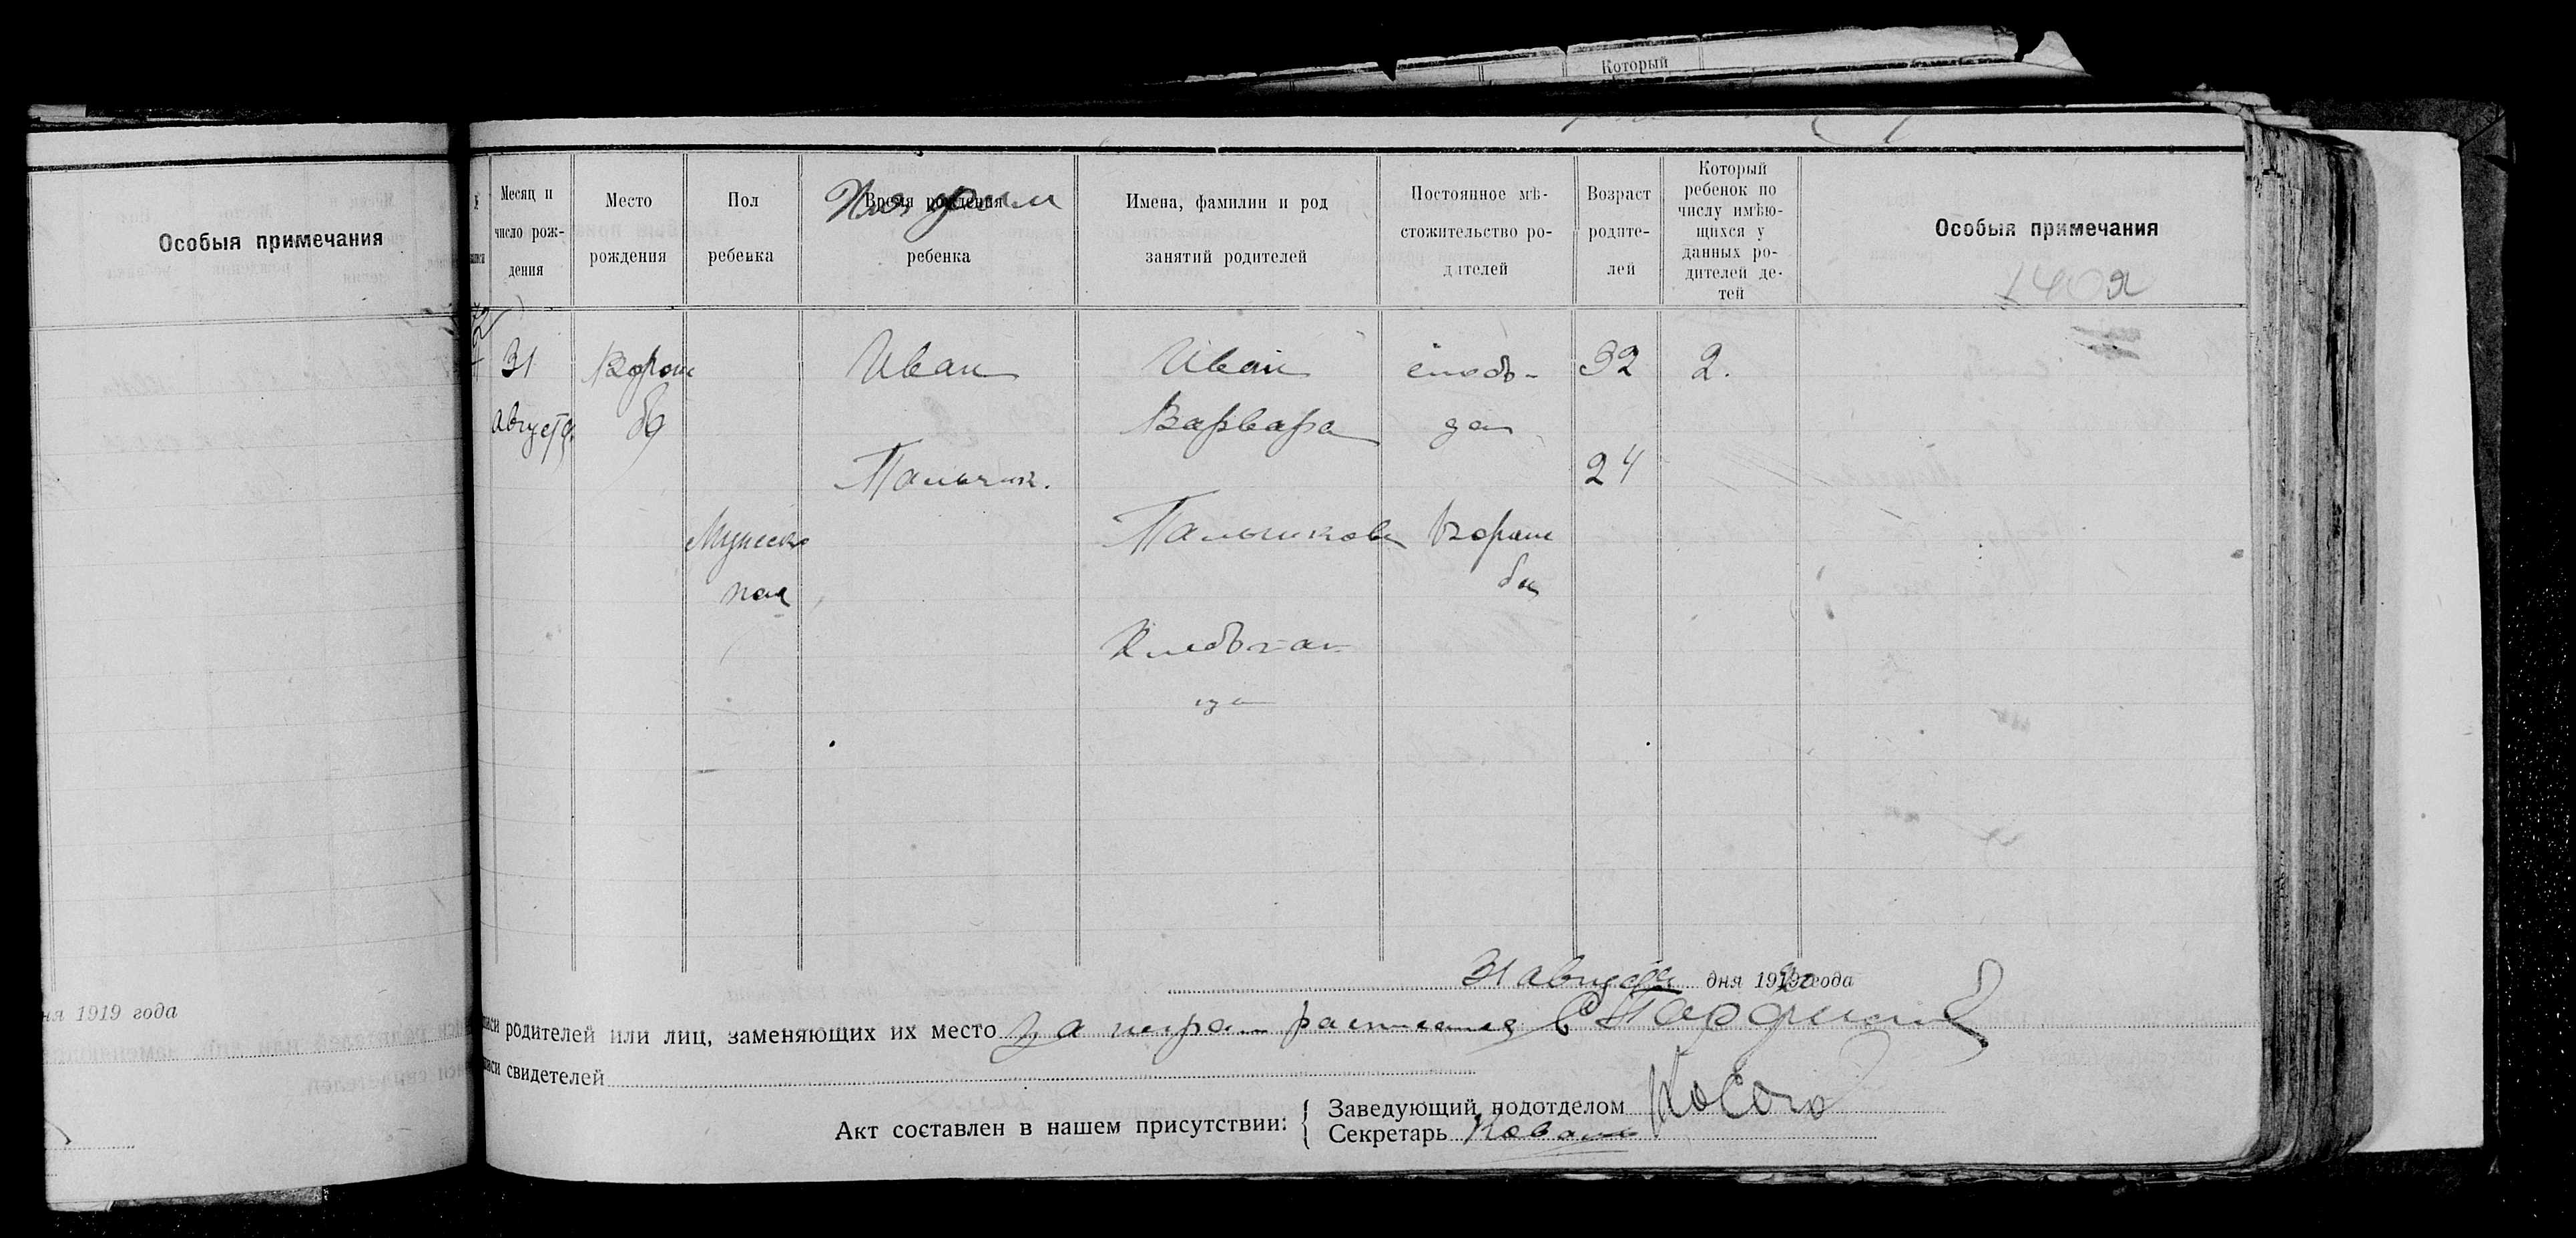 Который
Особыя примечания
Месяц и
число рож-
дения
Место
рождения
Пол
ребенка
Время рождения
ребенка
Имена, фамилии и род
занятий родителей
Постоянное мѣ-
стожительство ро-
дителей
Возраст
родите-
лей
Который
ребенок по
числу имѣю-
щихся у
данных ро-
дителей де-
тей
Особыя примечания
31
августа
Ворож
ба
Мужеск
пол
Иван
Пальчик.
Иван
Варвара
слобо-
да
Ворож
ба
32
24
2.
31 августа дня 1919 года
ня 1919 года
родителей или лиц, заменяющих их место за неграм расписался
свидетелей
Акт составлен в нашем присутствии:
Заведующий подотделом
Секретарь